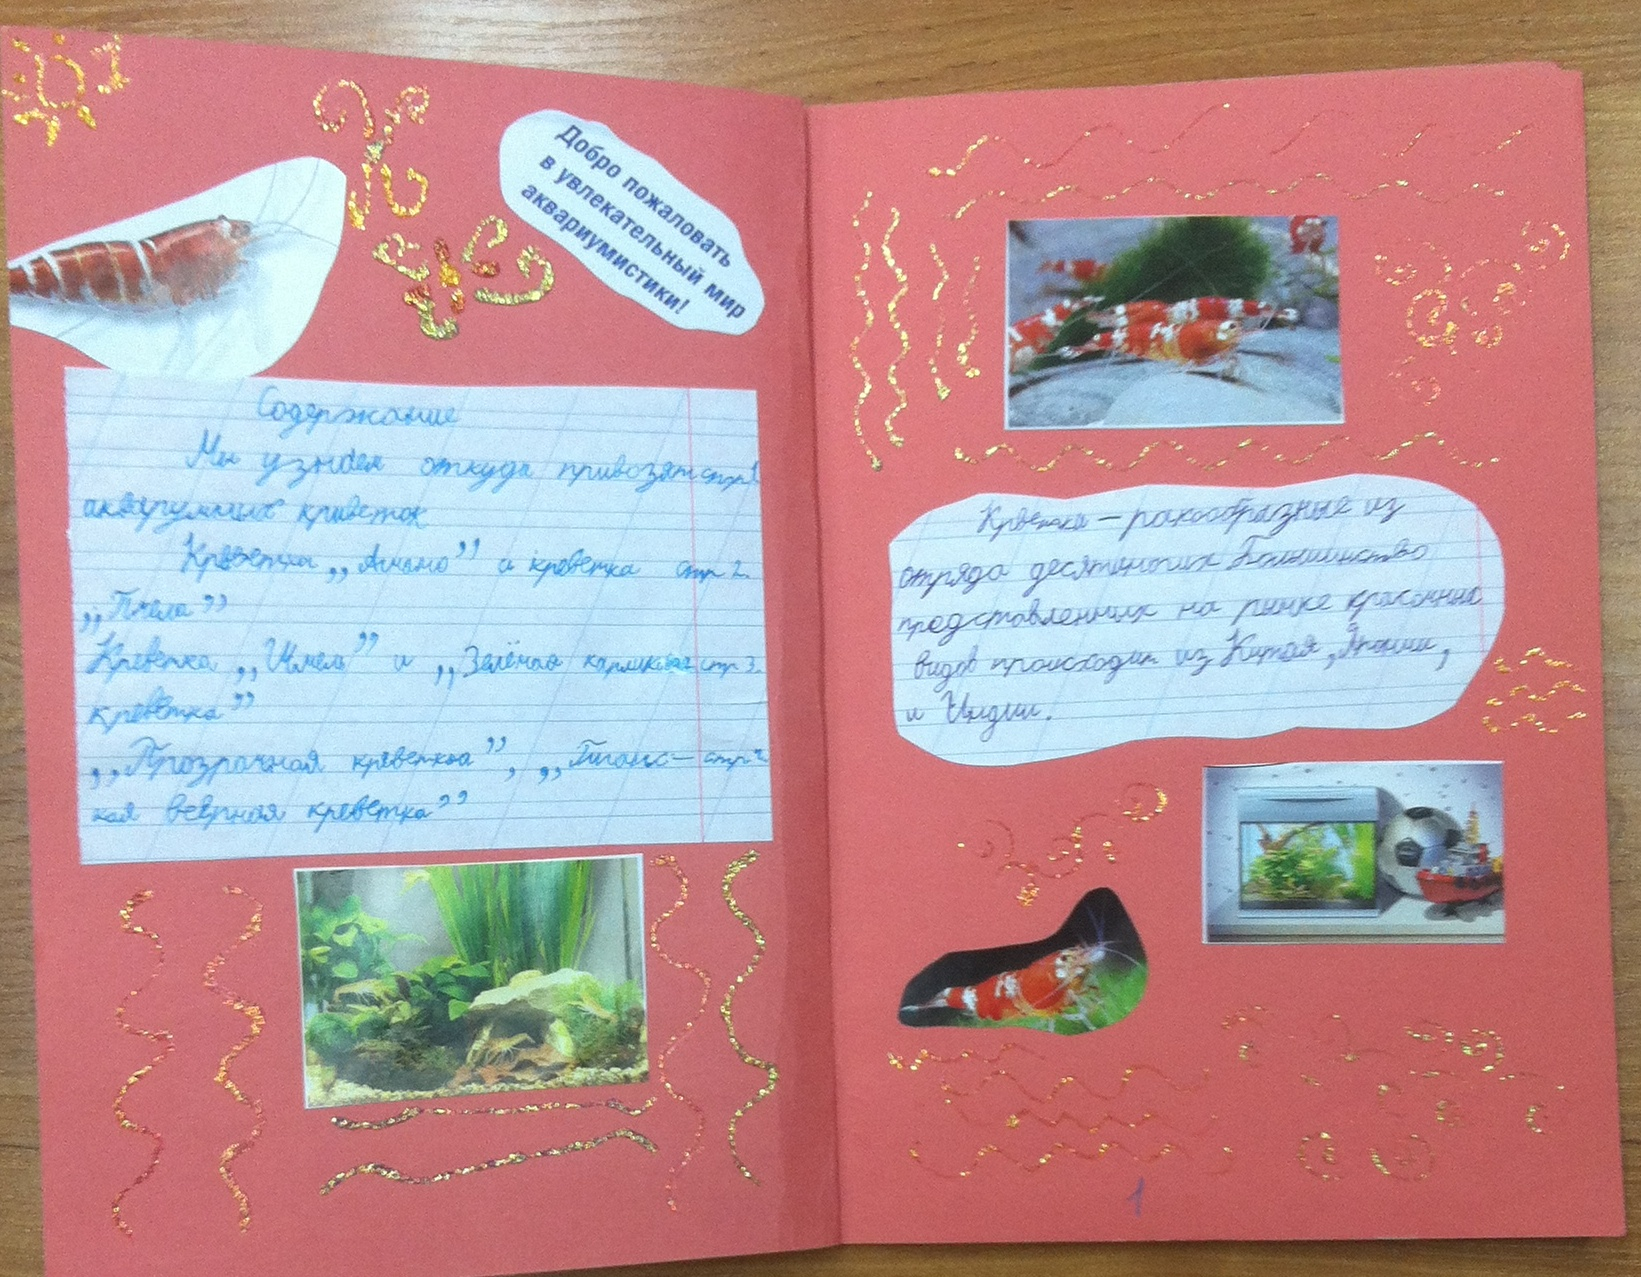 Добро пожаловать
в увлекательный мир
аквариумистики!
Содержание
Мы узнаем откуда привозят стр 1
акварумных криветок
Креветка „Амано” и креветка стр 2.
„Пчела”
Креветка „Шмель” и „Зелёная карликовая стр 3.
креветка”
„Прозрачная креветка”, „Гиганс- стр
кая веерная креветка”
Крветки – ракообразные из
отряда десятиногих Большинство
представленных на рынке красочных
видов происходит из Китая, Японии,
и Индии.
1